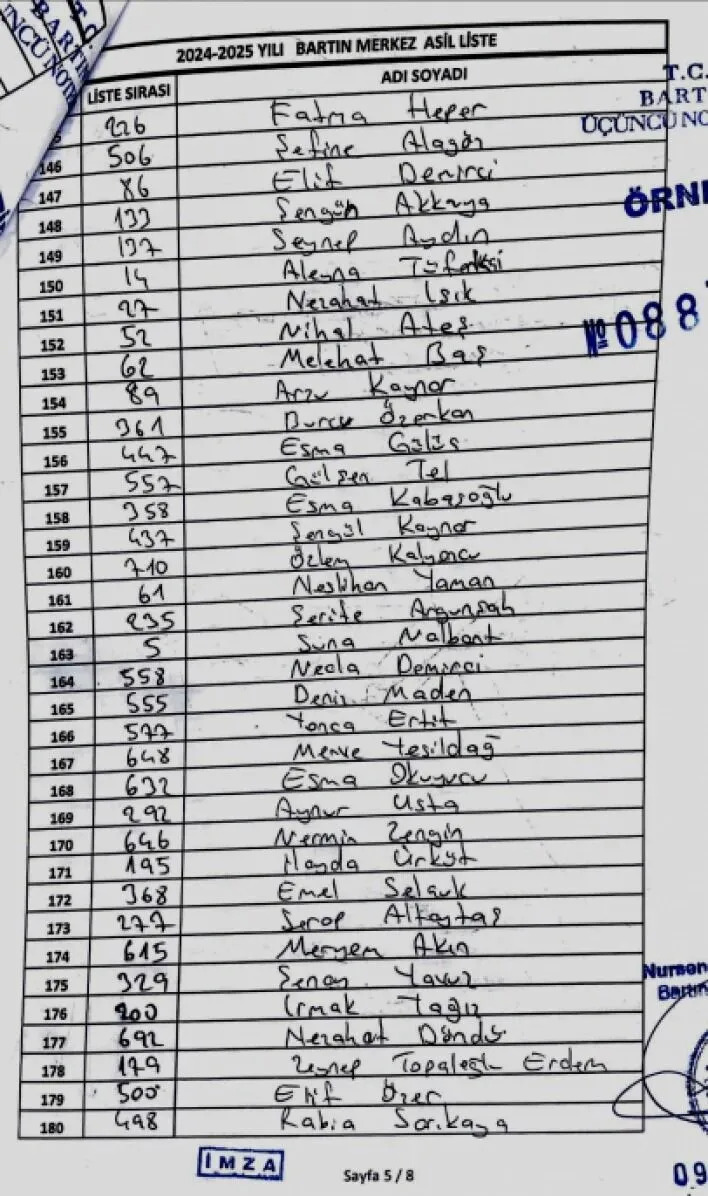 T.C.
BARTIN
ÜÇÜNCÜ NOT
2024-2025 YILI BARTIN MERKEZ ASİL LİSTE
LİSTE SIRASI ADI SOYADI
T.C.
BART
ÜÇÜNCÜ NO
ÖRNE
Nº 088
226 Fatma Heper
146 506 Şefine Alagöz
147 86 Elif Demirci
148 133 Şengün Akkaya
149 137 Seynep Aydın
150 14 Aleyna Tüfekçi
151 27 Nezahat Işık
152 52 Nihal Ateş
153 62 Melehat Baş
154 89 Arzu Kaynar
155 361 Burcu Özerkan
156 447 Esma Gülüş
157 557 Gülşen Tel
158 358 Esma Kabaşoğlu
159 437 Şengül Kaynar
160 710 Özlem Kalyoncu
161 61 Neslihan Yaman
162 235 Şerife Argunşah
163 5 Suna Nalbant
164 558 Necla Demirci
165 555 Deniz Maden
166 577 Yonca Ertit
167 648 Merve Yeşildağ
168 632 Esma Okuyucu
169 292 Aynur Usta
170 646 Nermin Zengin
171 195 Hayda Ürküt
172 368 Emel Selçuk
173 277 Serap Altaytaş
174 615 Meryem Akın
175 329 Şenay Yavuz
176 200 Irmak Yağız
177 692 Nezahat Döndü
178 179 Zeynep Topaloğlu Erdem
179 500 Elif Özer
180 498 Rabia Sarıkaya
Nursen
Bartın
İMZA
Sayfa 5 / 8
09